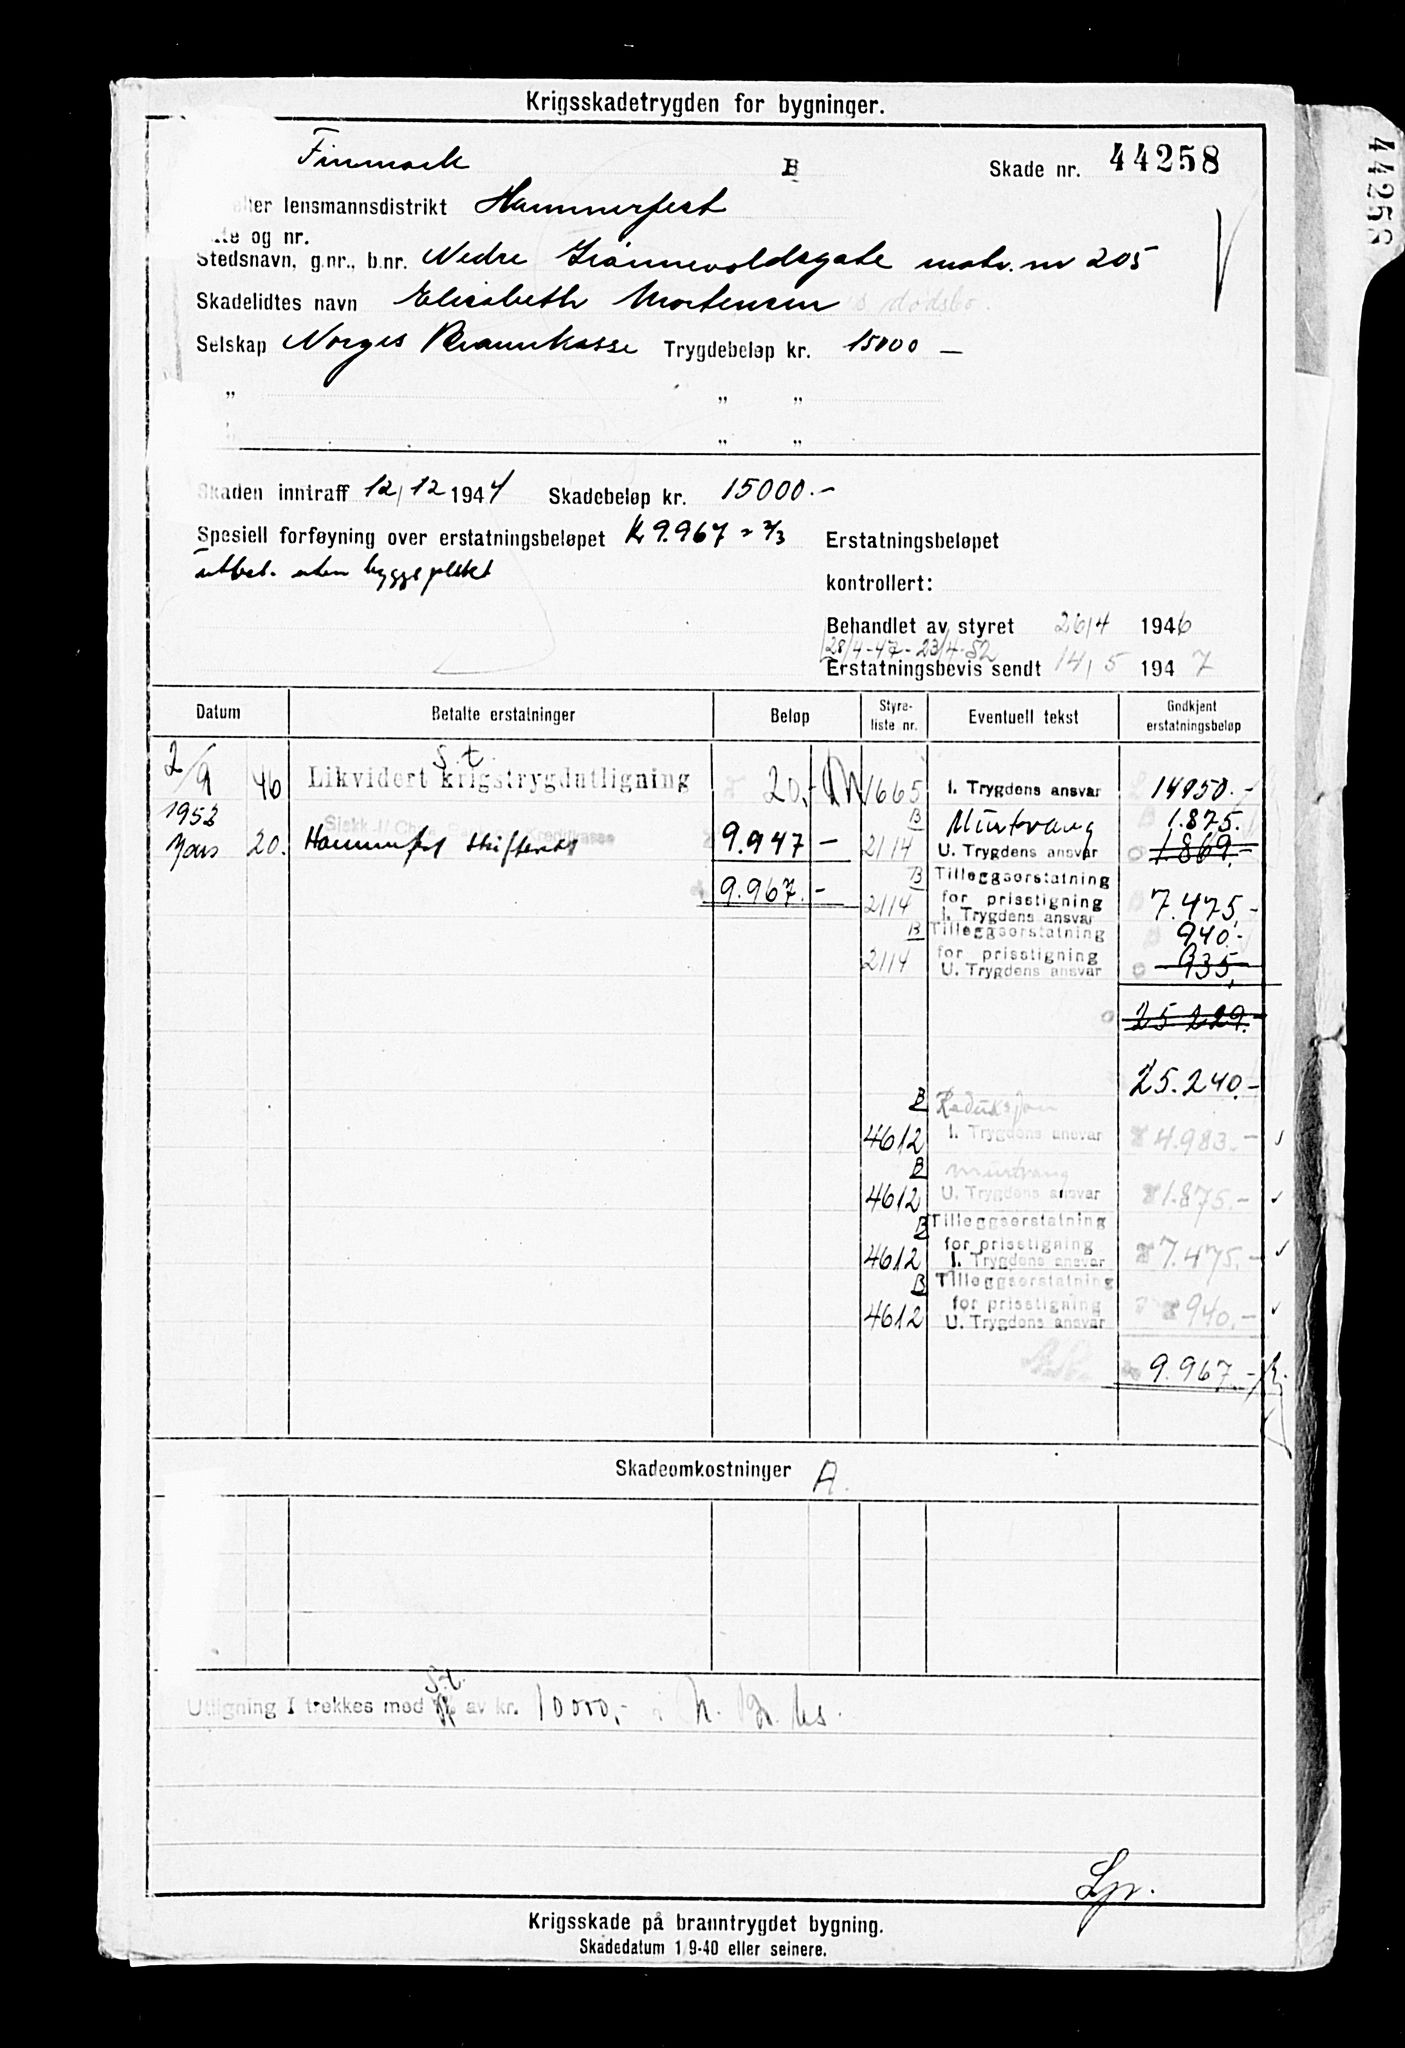 Krigsskadetrygden for bygninger.
Finmark B Skade nr. 44258
44258
eller lensmannsdistrikt Hammerfest
og nr.
Stedsnavn, g.nr., b.nr. Nedre Grönnevoldsgate matr. nr 205
Skadelidtes navn Elisabeth Mortensen s dødsbo.
Selskap Norges Brannkasse Trygdebeløp kr. 15000 —
„ „ „
„ „ „
Skaden inntraff 12/12 1944 Skadebeløp kr. 15000.-
Spesiell forføyning over erstatningsbeløpet Kr 9.967 = 2/3 Erstatningsbeløpet
utbet. uten byggeplikt kontrollert:
Behandlet av styret 26/4 1946
28/4-47 - 23/4-52
Erstatningsbevis sendt 14/5 1947
Datum Betalte erstatninger Beløp Styre-liste nr. Eventuell tekst Godkjent erstatningsbeløp
S.t.
2/9 46 Likvidert krigstrygdutligning 20,- 1665 I. Trygdens ansvar 14950.-
1953 B Murtvang 1.875.
Mars 20. Hammerfest 9.947 - 2114 U. Trygdens ansvar 1.869.-
9.967.- B Tilleggserstatning
2114 for prisstigning 7.475,-
I. Trygdens ansvar
B Tilleggserstatning 940.-
2114 for prisstigning 935,
U. Trygdens ansvar
25 229.-
25.240.-
B Reduksjon
4612 I. Trygdens ansvar 4.983.-
B Murtvang
4612 U. Trygdens ansvar 1.875.-
B Tilleggserstatning
4612 for prisstigning 7.475.-
I. Trygdens ansvar
B Tilleggserstatning
4612 for prisstigning 940.-
U. Trygdens ansvar
9.967.-
Skadeomkostninger A.
S.t.
Utligning I trekkes med av kr. 10000,- i N. Br. ks.
Krigsskade på branntrygdet bygning.
Skadedatum 1/9-40 eller seinere.